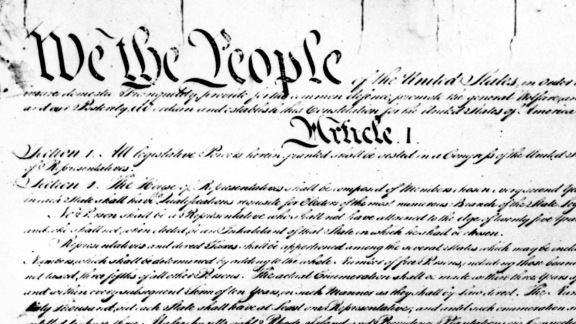 We the People of the United States, in Order
insure domestic Tranquility, provide for the common defence, promote the general Welfare, and
and our Posterity, do ordain and establish this Constitution for the United States of America
Article. I.
Section. 1. All legislative Powers herein granted shall be vested in a Congress of the United
of Representatives.
Section. 2. The House of Representatives shall be composed of Members chosen every second Year
in each State shall have Qualifications requisite for Electors of the most numerous Branch of the State
No Person shall be a Representative who shall not have attained to the Age of twenty five Years
and who shall not, when elected, be an Inhabitant of that State in which he shall be chosen.
Representatives and direct Taxes shall be apportioned among the several States which may be
Numbers, which shall be determined by adding to the whole Number of free Persons, including those
not taxed, three fifths of all other Persons. The actual Enumeration shall be made within three Years
and within every subsequent Term of ten Years, in such Manner as they shall by Law direct. The
thirty Thousand, but each State shall have at Least one Representative; and until such enumeration
entitled to chuse three, Massachusetts eight, Rhode Island and Providence Plantations